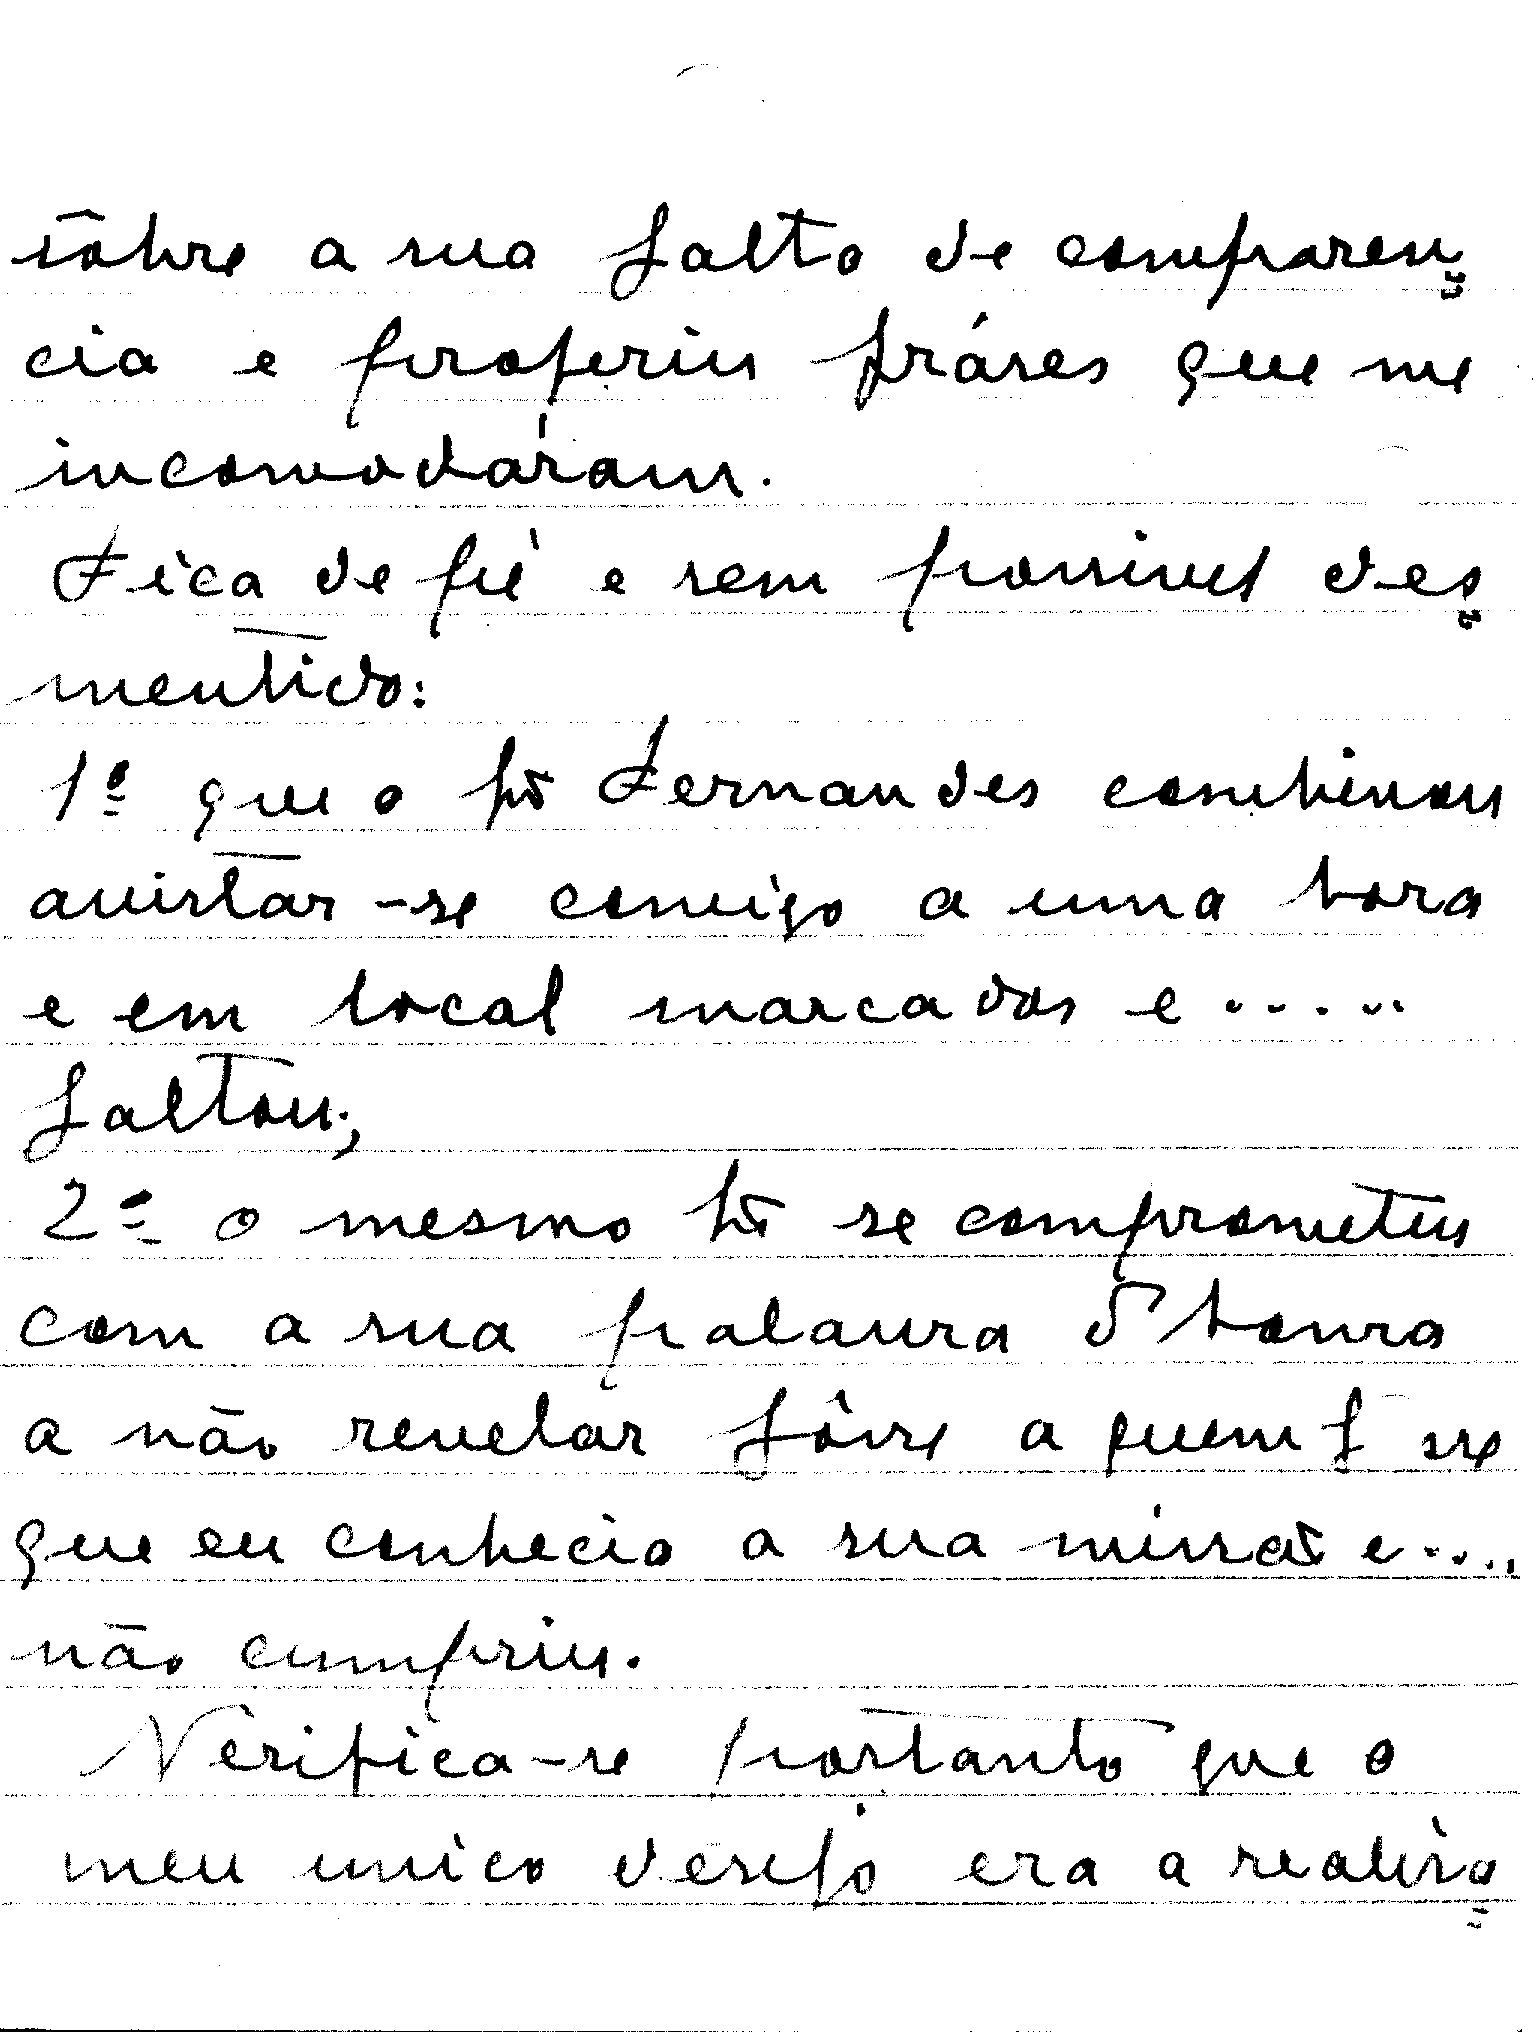 sôbre a sua falta de comparen=
cia e proferiu fráses que me
incomodáram.
Fica de pé e sem possivel des=
mentido:
1º que o Fernandes combinou
avistar-se comigo a uma hora
e em local marcados e .....
faltou;
2º o mesmo se comprometeu
com a sua palavra d'honra
a não revelar fôsse a quem fosse
que eu conhecia a sua missão e ....
não cumpriu.
Verifica-se portanto que o
meu unico desejo era a realisa=